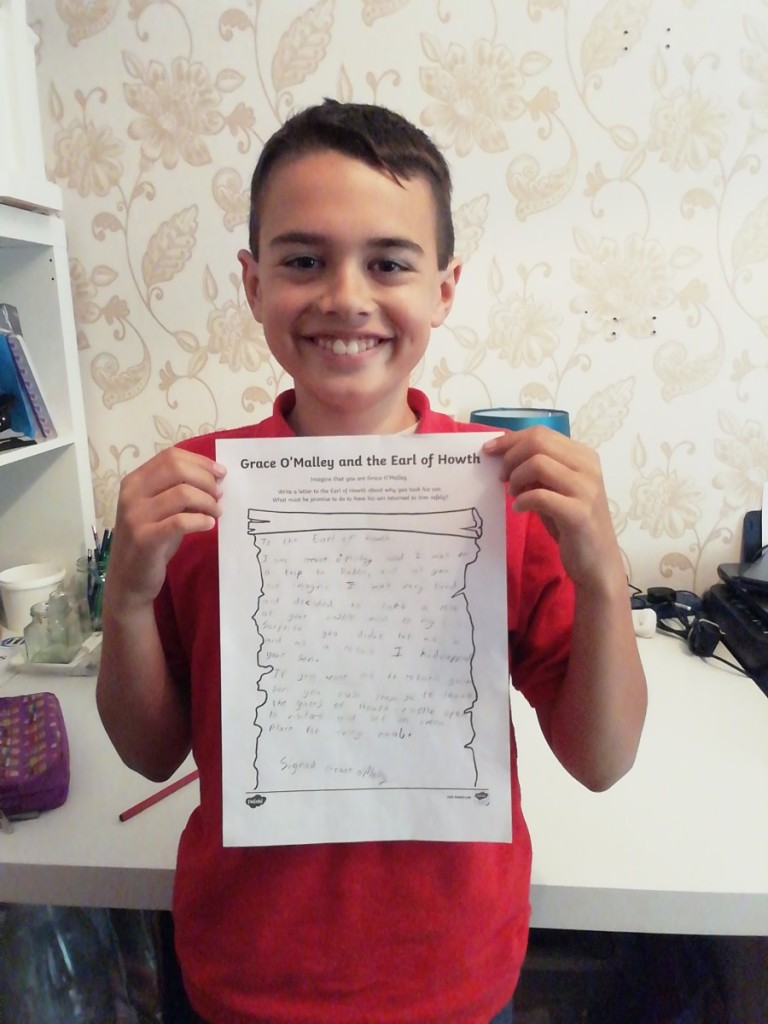 Grace O'Malley and the Earl of Howth
Imagine that you are Grace O'Malley
Write a letter to the Earl of Howth about why you took his son.
What must he promise to do to have his son returned to him safely?
To the Earl of Howth
I am and I was on
a trip to and as you
can I was very tired
and decided to take a rest
at your castle and to my
Surprise you didnt let me in
and as a result I kidnapped
your son.
If you want me to return your
son you must to leave
the gates of Howth castle open
to visitors and set an extra
place for every meal.
Signed Grace o'Malley
twinkl